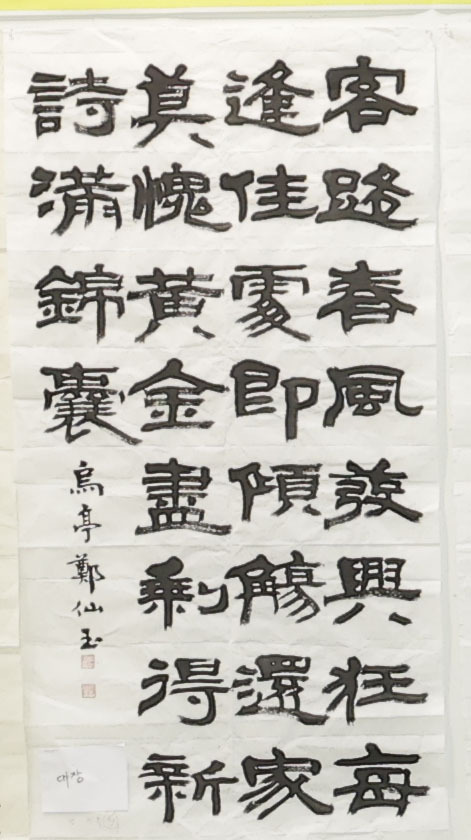 客路春風發興狂每
逢佳處即傾觴還家
莫愧黃金盡剩得新
詩滿錦囊
烏亭鄭仙玉
대장